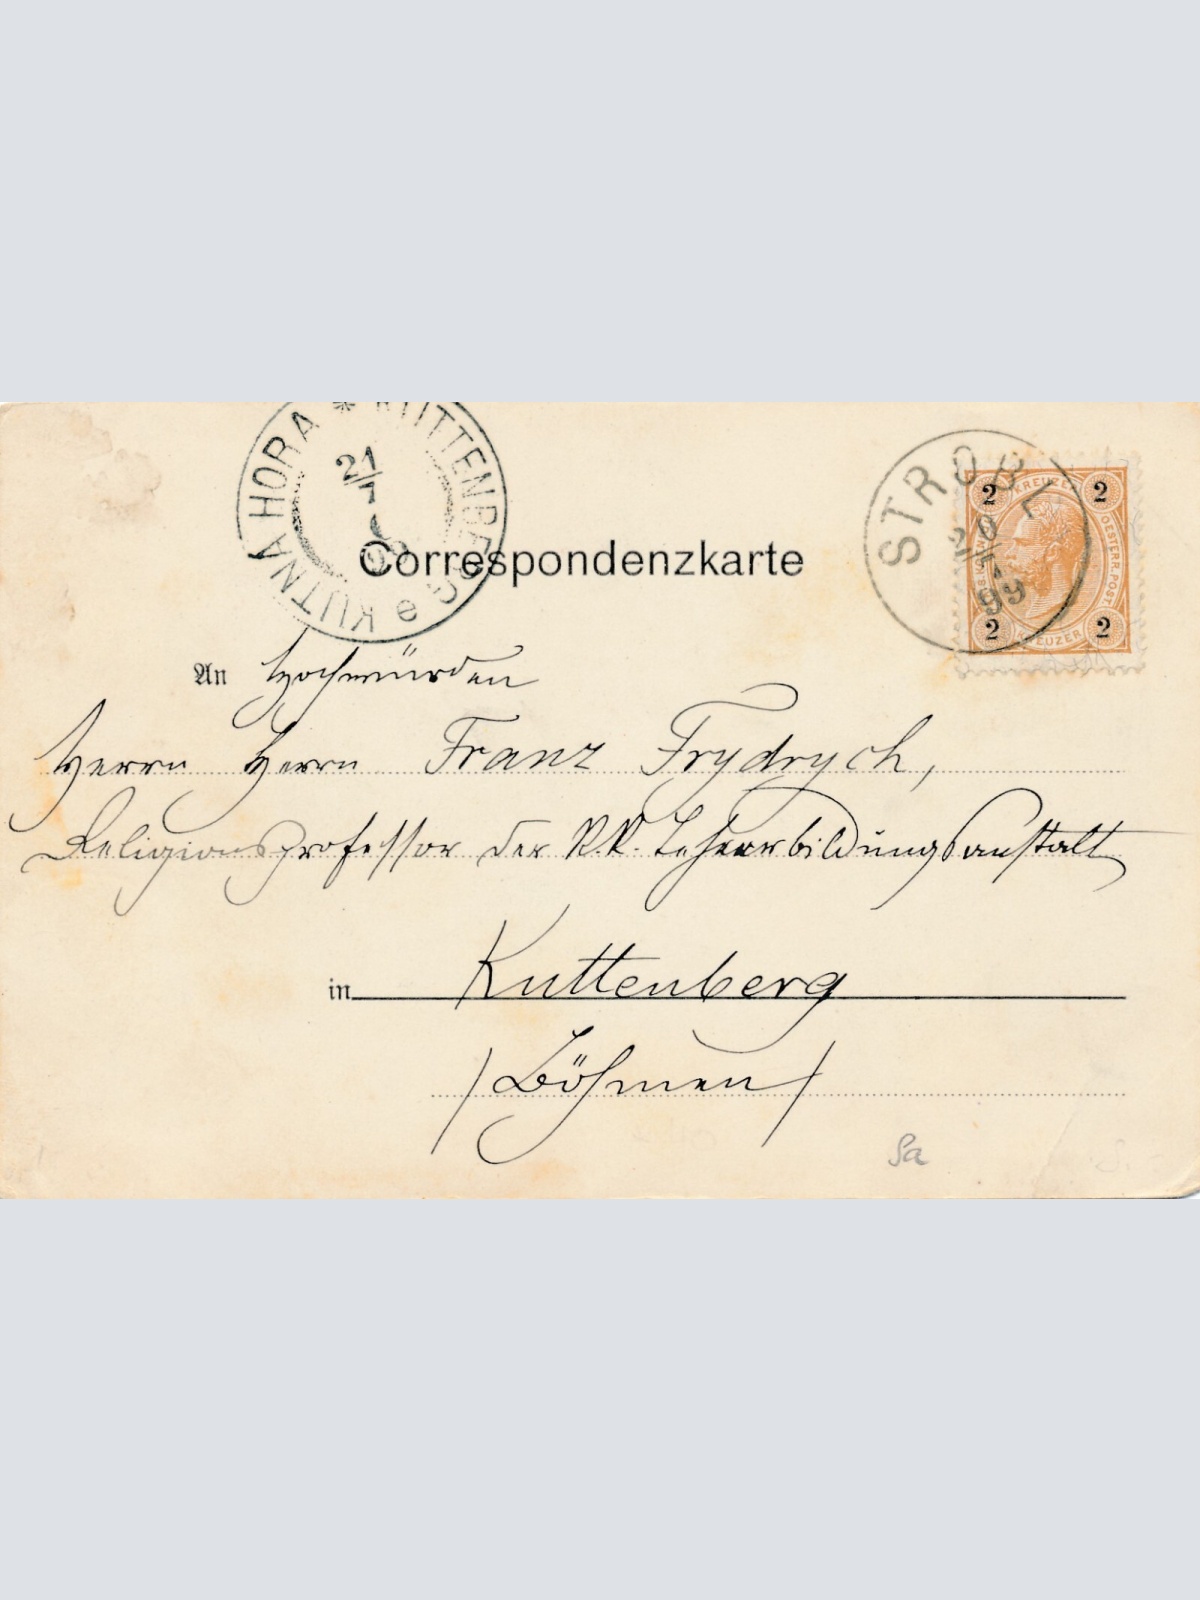 KUTNÁ HORA * KUTTENBERG e
21/7
STROBL
20/7 99
2 KREUZER 2
OESTERR. POST
2 KREUZER 2
Correspondenzkarte
An Hochwürden
Herrn Herrn Franz Frydrych,
Religionsprofessor der k.k. Lehrerbildungsanstalt
in Kuttenberg
/Böhmen/
Sa